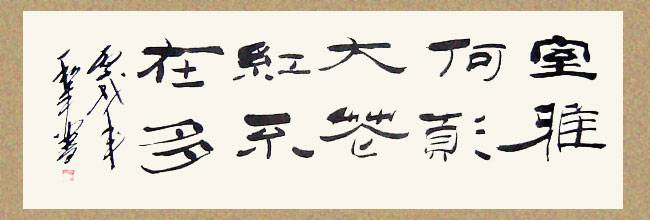 室雅
何須
大花
紅不
在多
丙戌年
書